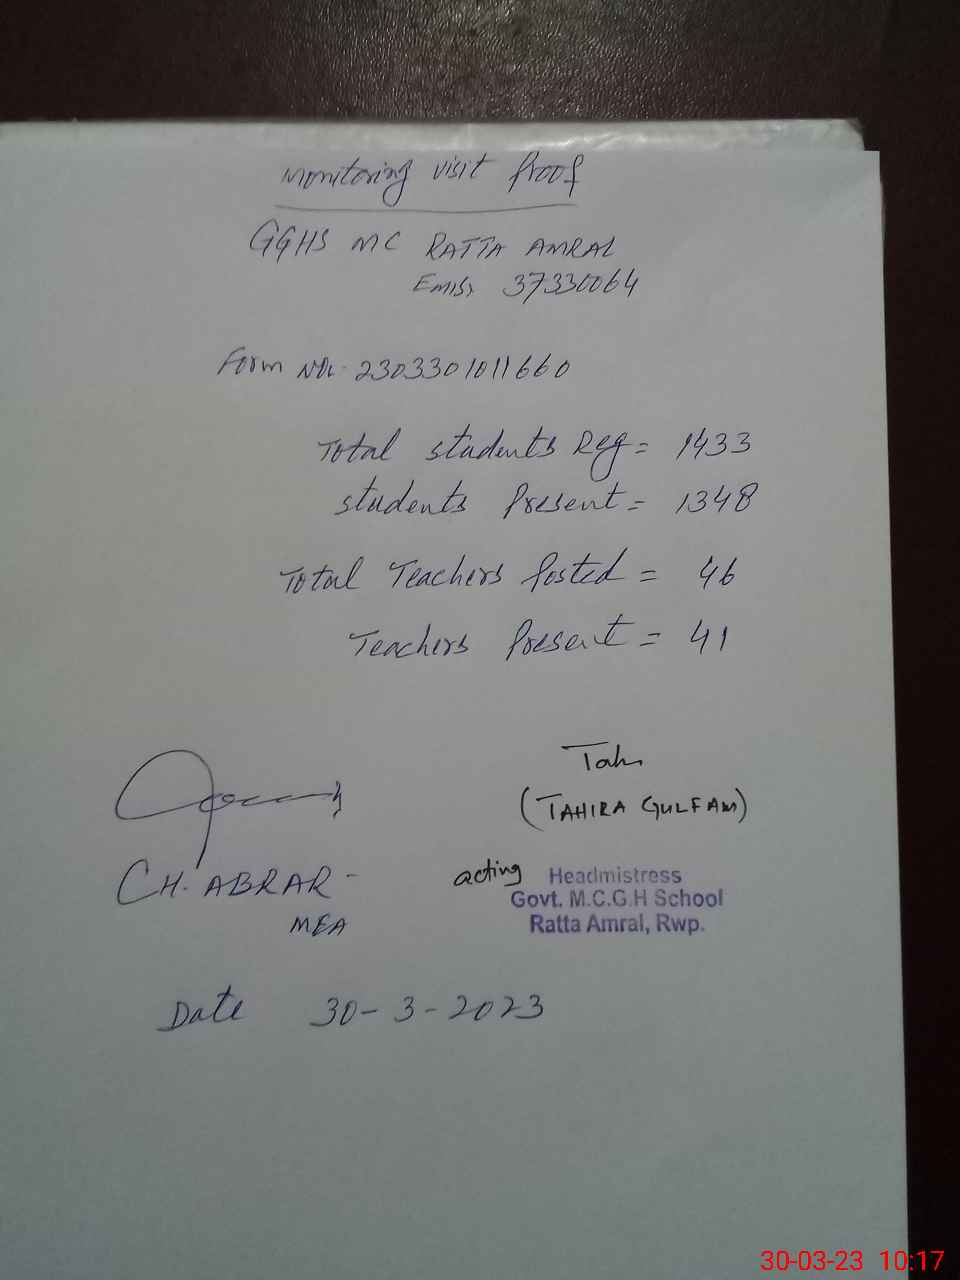 Monitoring visit Proof
GGHS MC RATTA AMRAL
EMIS: 37330064
Form No. 2303301011660
Total students Reg = 1433
students Present = 1348
Total Teachers Posted = 46
Teachers Present = 41
(TAHIRA GULFAM)
CH. ABRAR
MEA
acting Headmistress
Govt. M.C.G.H School
Ratta Amral, Rwp.
Date 30-3-2023
30-03-23 10:17